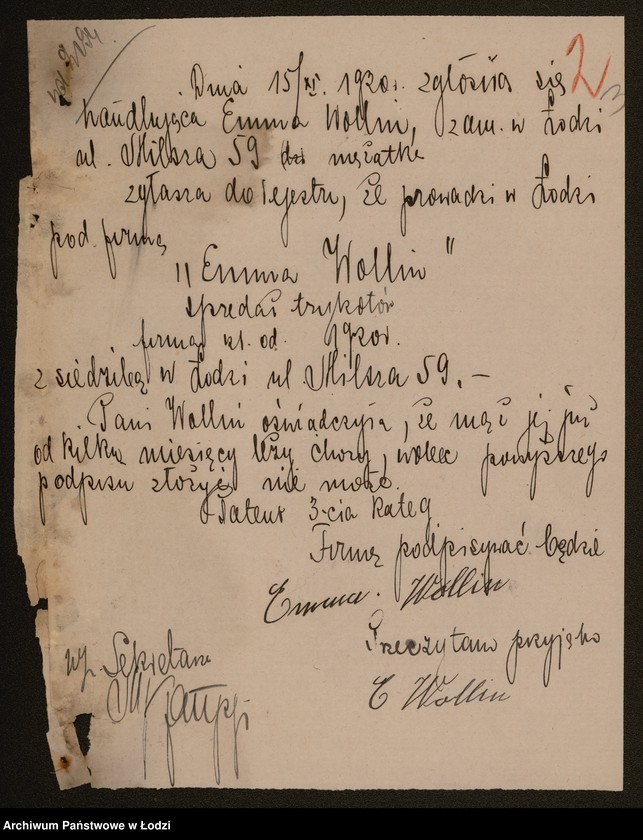 2
Dnia 15/XI. 1920r. zgłosiła się
handlująca Emma Wollin, zam. w Łodzi
ul. Milsza 59 mężatka
zgłasza do rejestru, że prowadzi w Łodzi
pod firmą
"Emma Wollin"
sprzedaż trykotów
firma ist. od. 1920r.
z siedzibą w Łodzi ul. Milsza 59.–
Pani Wollin oświadczyła, że mąż jej już
od kilku miesięcy leży chory, wobec powyższego
podpisu złożyć nie może.
Patent 3-cia kateg
Firmę podpisywać będzie
Emma. Wollin
Przeczytano przyjęto
E Wollin
wz. Sekretarz
Archiwum Państwowe w Łodzi